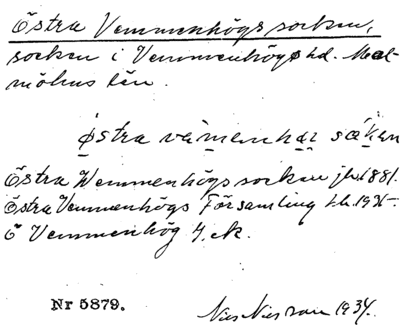 Östra Vemmenhögs socken,
socken i Vemmenhögs hd. Mal-
möhus län.
östra vämenhai såken
Östra Wemmenhögs socken jb. 1881.
Östra Vemmenhögs Församling 1926
Ö Vemmenhög J. ek.
Nr 5879.
Nils Nilsson 1934.